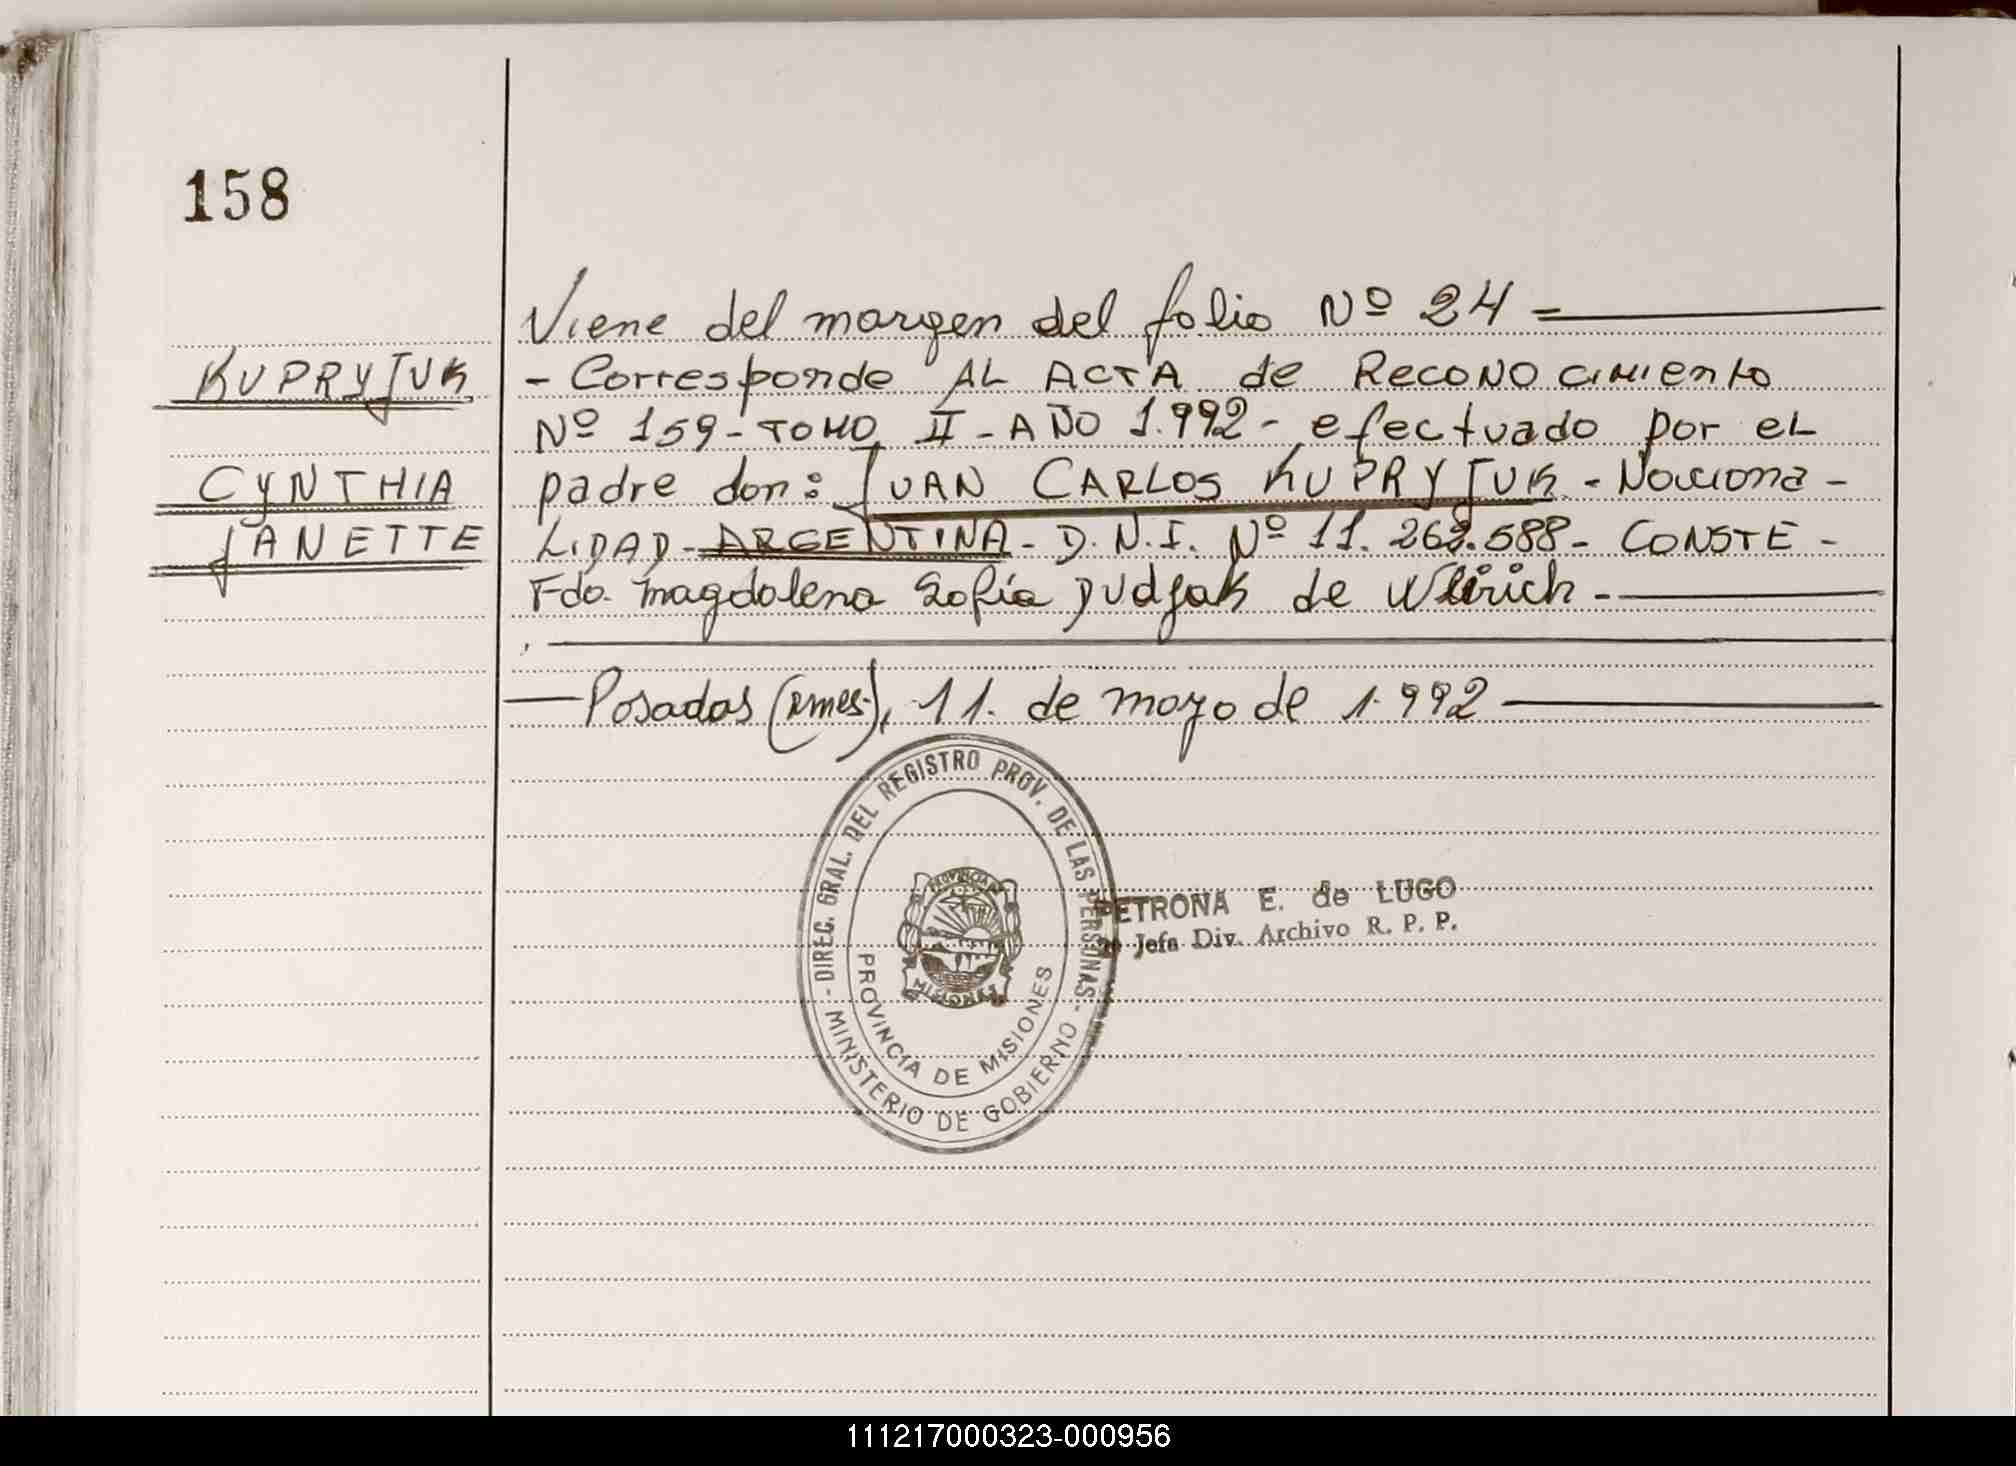 158
Viene del margen del folio Nº 24 =
KUPRYJUK
- Corresponde AL ACTA de RECONOCIMIENTO
Nº 159 - TOMO II - AÑO 1.992 - efectuado por el
CYNTHIA
padre don: JUAN CARLOS KUPRYJUK - Naciona -
JANETTE
LIDAD - ARGENTINA - D.N.I. Nº 11.262.588 - CONSTE -
Fdo. Magdalena Sofía Dudjak de Wlirich -
— Posadas (Mnes.), 11. de mayo de 1.992
DIREC. GRAL. DEL REGISTRO PROV. DE LAS PERSONAS -
PROVINCIA DE
MISIONES
PROVINCIA DE MISIONES
- MINISTERIO DE GOBIERNO
PETRONA E. de LUGO
Jefa Div. Archivo R. P. P.
111217000323-000956